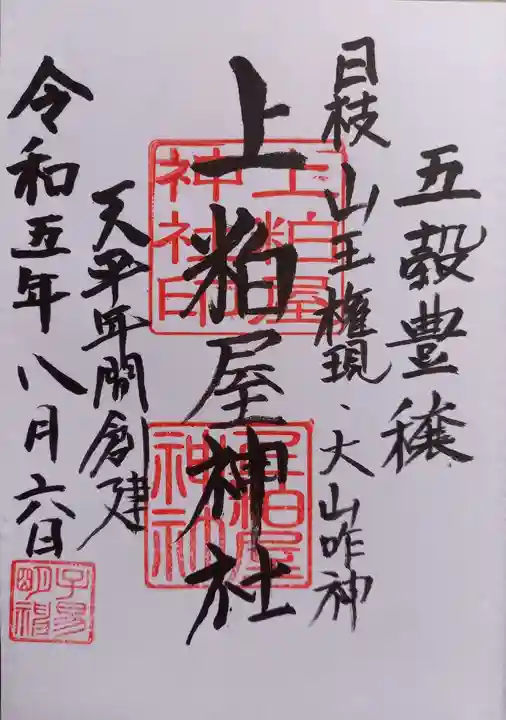 五穀豊穣
日枝 山王権現・大山咋神
上粕屋神社
天平年間創建
令和五年八月六日
上粕屋
神社印